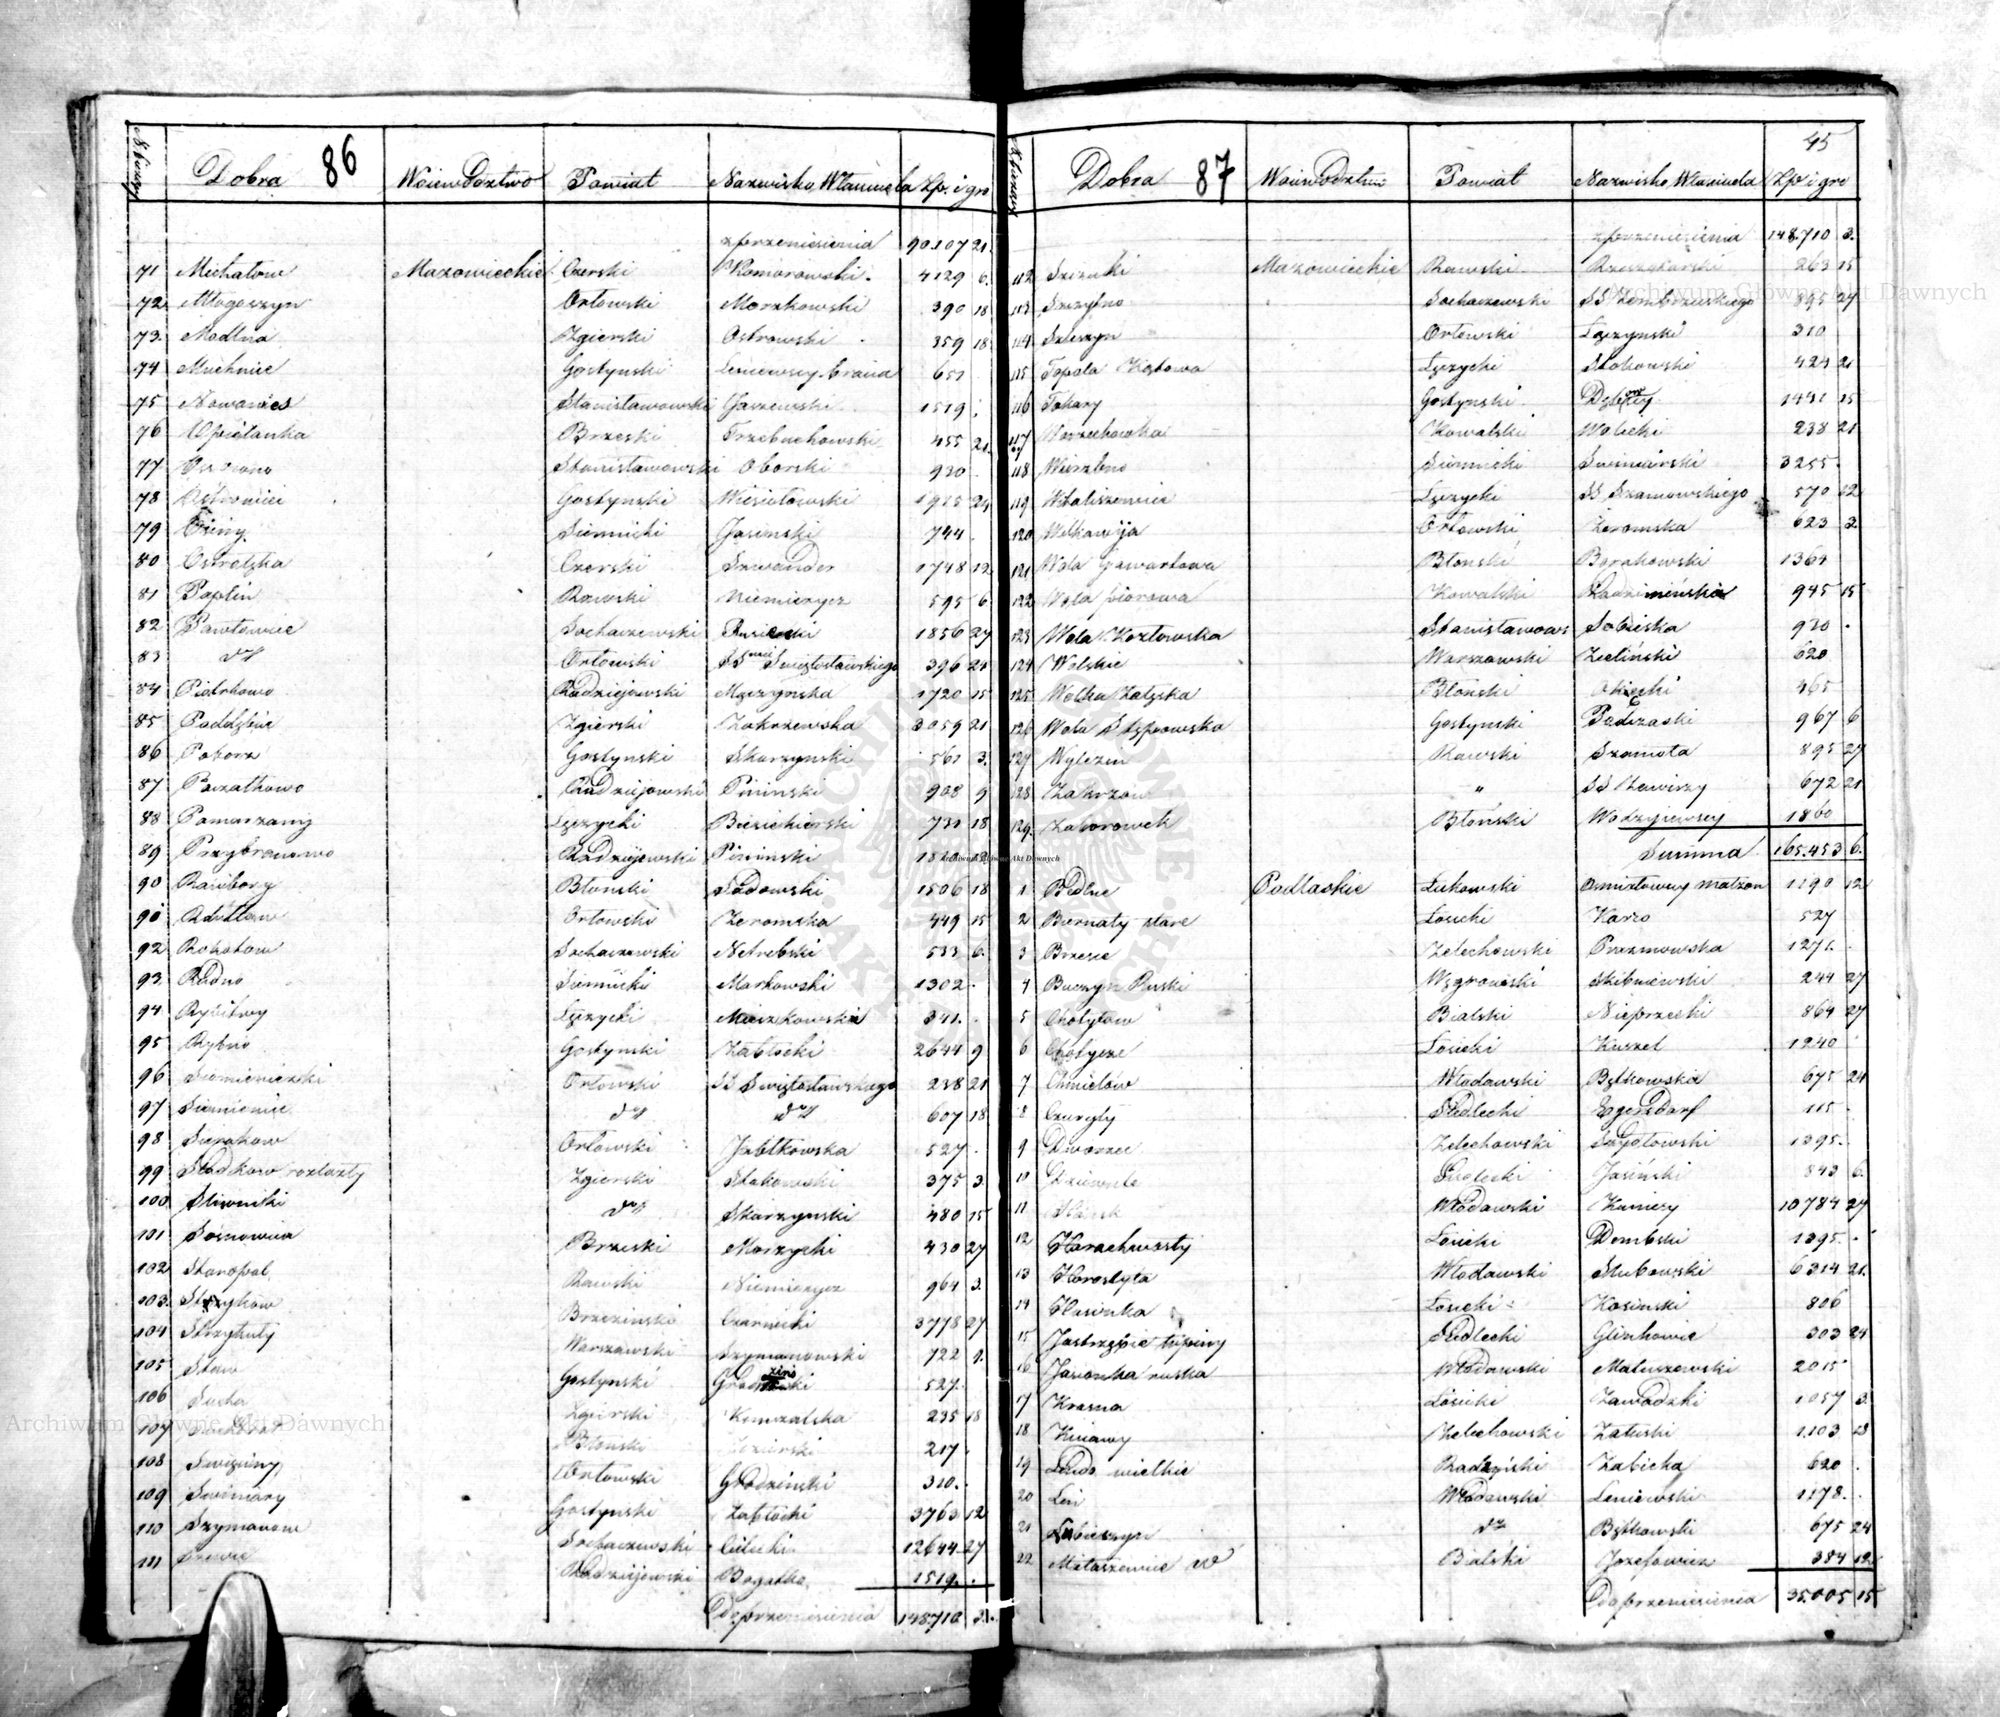 № bieżący Dobra 86 Województwo Powiat Nazwisko Właściciela Złp. i gro
zprzeniesienia 90107 21.
71 Michałow Mazowieckie Czerski Komorowski 4129 6.
72 Młogoszyn Orłowski Morzkowski 390 18
73. Modlna Zgierski Ostrowski 359 18
74 Muchnice Gostynski Leniewscy bracia 651
75 Nowawies Stanisławowski Garzewski 1519
76 Opiełanka Brzeski Trzebuchowski 455 21.
77 Stanisławowski Oborski 930
78 Ostrowiec Gostynski Wiesiołowski 1915 24
79 Sieninicki Jasinski 744
80 Ostrołęka Czerski Szwander 1748 12
81 Paplin Rawski Niemierycz 595 6
82 Pawłowice Sochaczewski 1856 27
83 dtt Orłowski SS Swiętosławskiego 396 24
84 Piotrkowo Radziejowski Mączynska 1720 15
85 Poddębice Zgierski Zakrzewska 3059 21
86 Poborz Gostynski Skarzynski 561 3.
87 Poczałkowo Radziejowski Pininski 908 9
88 Pomarzany Łęczycki Biesiekierski 731 18
89 Przybranowo Radziejowski Pininski
90 Racibory Błonski Sadowski 1506 18
91 Orłowski Żeromska 449 15
92 Rokotow Sochaczewski Netrebski 533 6.
93. Rudno Siennicki Markowski 1302
94 Rybitwy Łęczycki 341.
95 Rybno Gostynski Zabłocki 2644 9
96 Siemieniczki Orłowski SS Swiętosławskiego 238 21
97 Siemienice dtt dtt 607 18
98 Sierakow Orłowski Jabłkowska 527
99 Sladkow rozlazły Zgierski Stokowski 375 3.
100 Sliwniki dtt Skarzynski 480 15
101 Sosnowica Brzeski Morzycki 430 27
102 Staropol Rawski Niemierycz 964 3.
103. Strykow Brzezinski Czarnecki 3778 27
104 Strzykuły Warszawski Szymanowski 722 9.
105 Staw Gostynski 527.
106 Sucha Zgierski Komzalska 235 18
107 Błonski 217
108 Swięciny Orłowski Grodzinski 310.
109 Swiniary Gostynski Zabłocki 3763 12
110 Szymanow Sochaczewski 12644 27
111 Radziejowski Bogatko 1519.
Doprzeniesienia 148710 3.
№ bieżący Dobra 87 Województwo Powiat Nazwisko Właściciela Złp i gro
45
zprzeniesienia 148.710 3.
112 Szczuki Mazowieckie Rawski 263 15
113 Szczytno Sochaczewski SS Dembowskiego 895 27
114 Szleszyn Orłowski Łączynski 310
115 Topola Kątowa Łęczycki Stokowski 424 21
116 Tokary Gostynski 1431 15
117 Warzechowka Kowalski Wolicki 238 21
118 Wierzbno Siennicki Swiniarski 3255
119 Witaliszewice Łęczycki SS Szamowskiego 570 12
120 Orłowski Żeromska 623 3.
121 Wola Gawartowa Błonski Borakowski 1364
122 Wola piorowa Kowalski Radziminska 945 15
123 Wola Kozłowska Stanisławows Sobieska 930
124 Wolskie Warszawski Zieliński 620
125 Wolka Załęska Błoński Okęcki 465
126 Wola Stępowska Gostynski 967 6
127 Wylezin Rawski Szamota 895 27
128 Zakrzow " SS Zawiszy 672 21
129 Zaborowek Błoński Wodzyjewscy 1860
Summa 165.453 6.
1 Bedlne Podlaskie Łukowski 1190 12
2 Biernaty stare Łosicki Karso 527
3 Brzesce Zelechowski Prazmowska 1271.
4 Buczyn Ruski Węgrowski Skibniewski 244 27
5 Chotyłow Bialski Nieprzecki 864 27
6 Chotycze Łosicki Kuszel 1240
7 Chmielów Włodawski Bętkowska 675 24
8 Czuryły Siedlecki Egersdorf 115
9 Dworzec Zelechowski Szydłowski 1395.
10 Siedlecki Jasiński 843 6.
11 Hańsk Włodawski Kunicy 10784 27
12 Horochwosty Łosicki Dembski 1395.
13 Horostyta Włodawski Stubowski 6314 21.
14 Hasinka Łosicki Kosinski 806
15 Jastrzębie tupiny Siedlecki Gliszkowic 303 24
16 Jasionka ruska Włodawski Matuszewski 2015
17 Krasna Łosicki Zawadzki 1057 3.
18 Kujawy Zelechowski Załuski 1103 18
19 wielkie Radzyński Zabicka 620
20 Włodawski Leniewski 1178.
21 Lubiczyn dtt Bętkowski 675 24
22 Małaszewice W Bialski Jozefowicz 384 12
Doprzeniesienia 35.005 15
Archiwum Główne Akt Dawnych